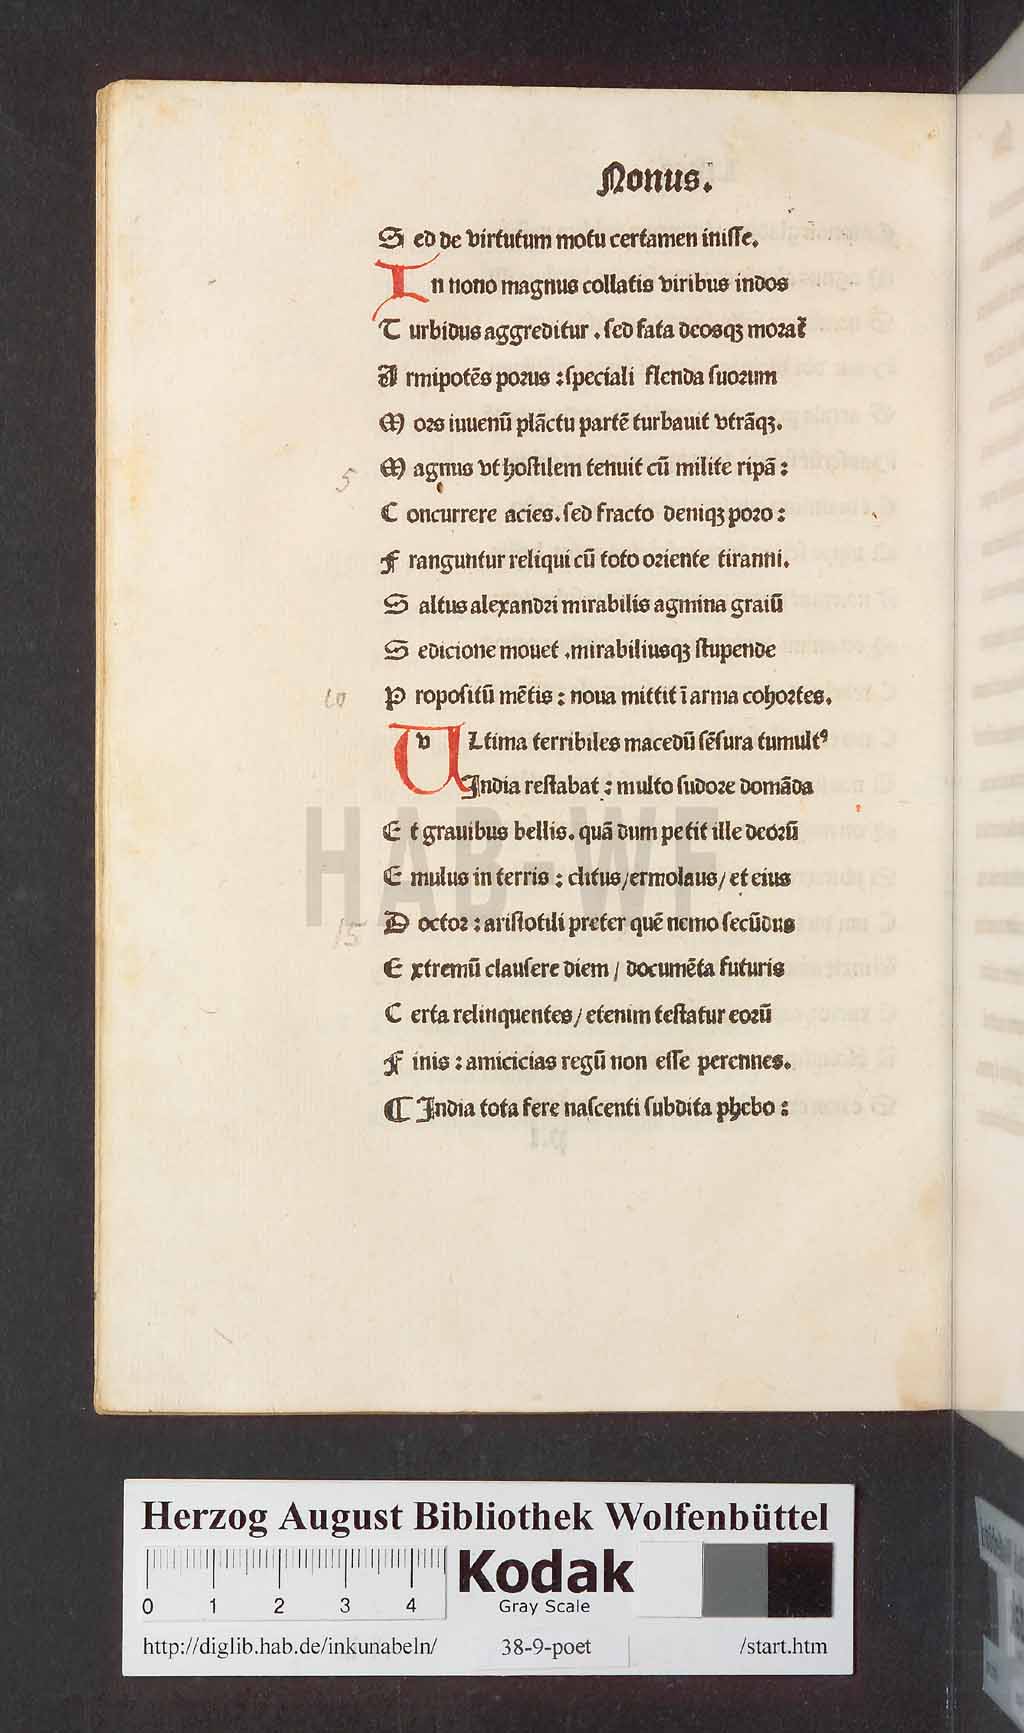 Nonus.
S ed de virtutum motu certamen inisse.
In nono magnus collatis viribus indos
T urbidus aggreditur . sed fata deosqꝫ morat᷑
A rmipotēs porus : speciali flenda suorum
M ors iuuenū plāctu partē turbauit vtrāqꝫ.
5 M agnus vt hostilem tenuit cū milite ripā :
C oncurrere acies. sed fracto deniqꝫ poro :
F ranguntur reliqui cū toto oriente tiranni.
S altus alexandri mirabilis agmina graiū
S edicione mouet .mirabiliusqꝫ stupende
10 P ropositū mētis : noua mittit ī arma cohortes.
Vltima terribiles macedū sēsura tumultꝰ
India restabat : multo sudore domāda
E t grauibus bellis. quā dum petit ille deorū
E mulus in terris : clitus/ermolaus/ et eius
15 D octor : aristotili preter quē nemo secūdus
E xtremū clausere diem / documēta futuris
C erta relinquentes/ etenim testatur eorū
F inis : amicicias regū non esse perennes.
¶ India tota fere nascenti subdita phebo :
HAB-WF
Herzog August Bibliothek Wolfenbüttel
0 1 2 3 4
Kodak
Gray Scale
http://diglib.hab.de/inkunabeln/ 38-9-poet /start.htm